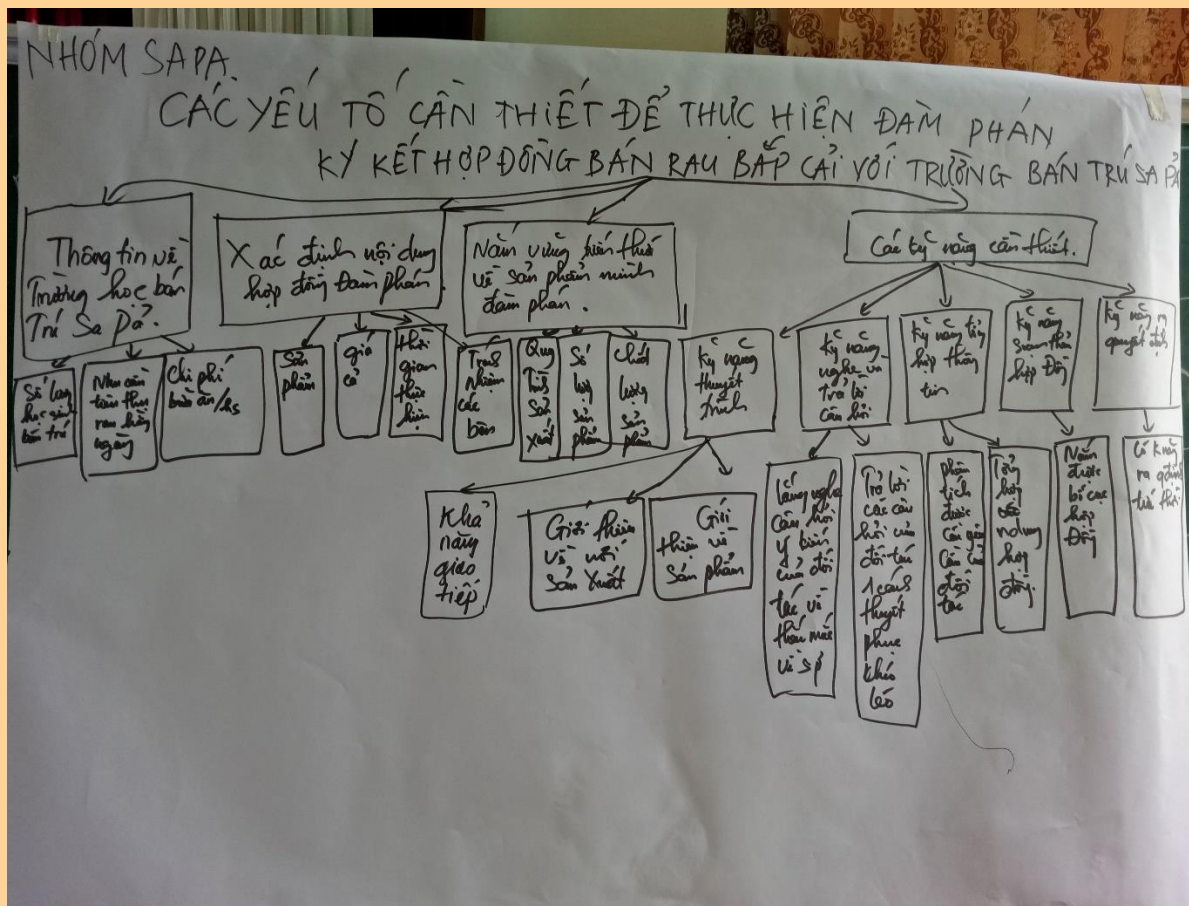 NHÓM SAPA
CÁC YẾU TỐ CẦN THIẾT ĐỂ THỰC HIỆN ĐÀM PHÁN
KÝ KẾT HỢP ĐỒNG BÁN RAU BẮP CẢI VỚI TRƯỜNG BÁN TRÚ SA PẢ
Thông tin về
Trường học bán
Trú Sa Pả.
Xác định nội dung
hợp đồng Đàm phán
Nắm vững kiến thức
về sản phẩm mình
đàm phán.
Các kỹ năng cần thiết.
Số lượng
học sinh
bán trú
Nhu cầu
tiêu thụ
rau hàng
ngày
Chi phí
bữa ăn/hs
Sản
phẩm
giá
cả
thời
gian
thực
hiện
Trách
Nhiệm
các
bên
Quy
Trình
Sản
xuất
Số
lượng
sản
phẩm
chất
lượng
sản
phẩm
Kỹ năng
thuyết
trình
Kỹ năng
nghe và
Trả lời
câu hỏi
Kỹ năng tổng
hợp thông
tin
Kỹ năng
soạn thảo
hợp Đồng
Kỹ năng ra
quyết định
Khả
năng
giao
tiếp
Giới thiệu
về nơi
sản xuất
Giới
thiệu về
Sản phẩm
Lắng nghe
câu hỏi
ý kiến
của đối
tác về
thắc mắc
về sp
Trả lời
các câu
hỏi của
đối tác
1 cách
thuyết
phục
khéo
léo
phân
tích
được
cái gì
cần của
đối
tác
Tổng
hợp
nd dung
hợp
đồng.
Nắm
được
bố cục
hợp
Đồng
Có k năng
ra qđịnh
tức thời